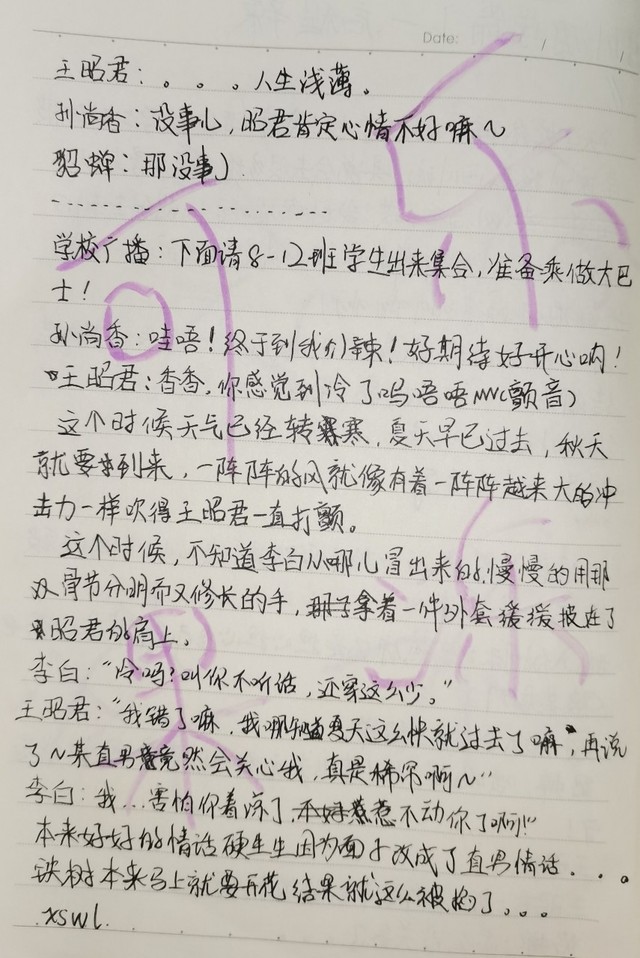 Date: / /
王昭君：。。。人生浅薄。
孙尚香：没事儿，昭君肯定心情不好嘛~
貂蝉：那没事儿
学校广播：下面请8-12班学生出来集合，准备乘做大巴
士！
孙尚香：哇唔！终于到我们辣！好期待好开心呐！
王昭君：香香，你感觉到冷了吗唔唔(颤音)
这个时候天气已经转寒，夏天早已过去，秋天
就要到来，一阵阵的风就像有着一阵阵越来大的冲
击力一样吹得王昭君一直打颤。
这个时候，不知道李白从哪儿冒出来的，慢慢的用那
双骨节分明而又修长的手，拿着一件外套缓缓披在了
昭君的肩上。
李白：“冷吗？叫你不听话，还穿这么少。”
王昭君：“我错了嘛，我哪知道夏天这么快就过去了嘛，再说
了~某直男竟然会关心我，真是稀罕啊~”
李白：我...害怕你着凉了，惹不动你了啊！”
本来好好的情话硬生生因为面子改成了直男情话...。
铁树本来马上就要开花结果就这么被掐了。。。
xswl.